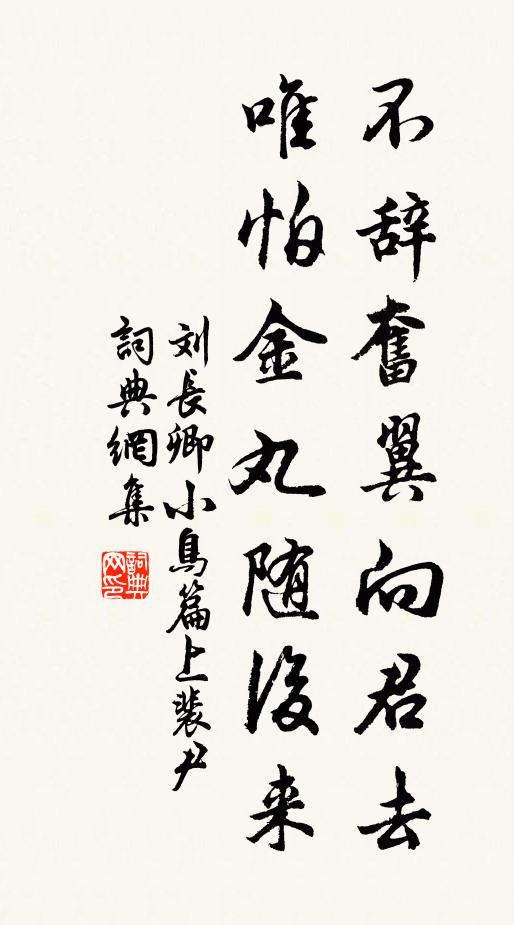 不辞奮翼向君去
唯怕金丸随後来
刘長卿小鳥篇上裴尹
詞典網集
詞典网印